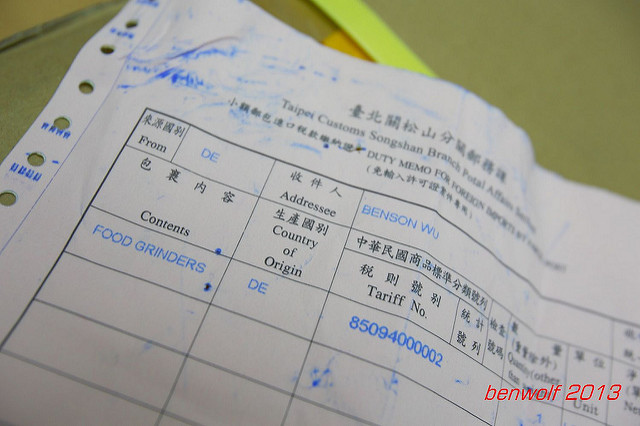 臺北關松山分關郵務課
Taipei Customs Songshan Branch Postal Affairs
小額郵包進口稅款繳納證
DUTY MEMO FOR FOREIGN IMPORTS BY
(免輸入許可證案件專用)
來源國別
From
DE
收件人
Addressee
BENSON WU
包裹內容
Contents
生產國別
Country
of
Origin
中華民國商品標準分類號列
稅則號別
Tariff No.
統計
號列
檢查
號碼
數量
Quantity (other
單位
Unit
FOOD GRINDERS
DE
85094000002
benwolf 2013